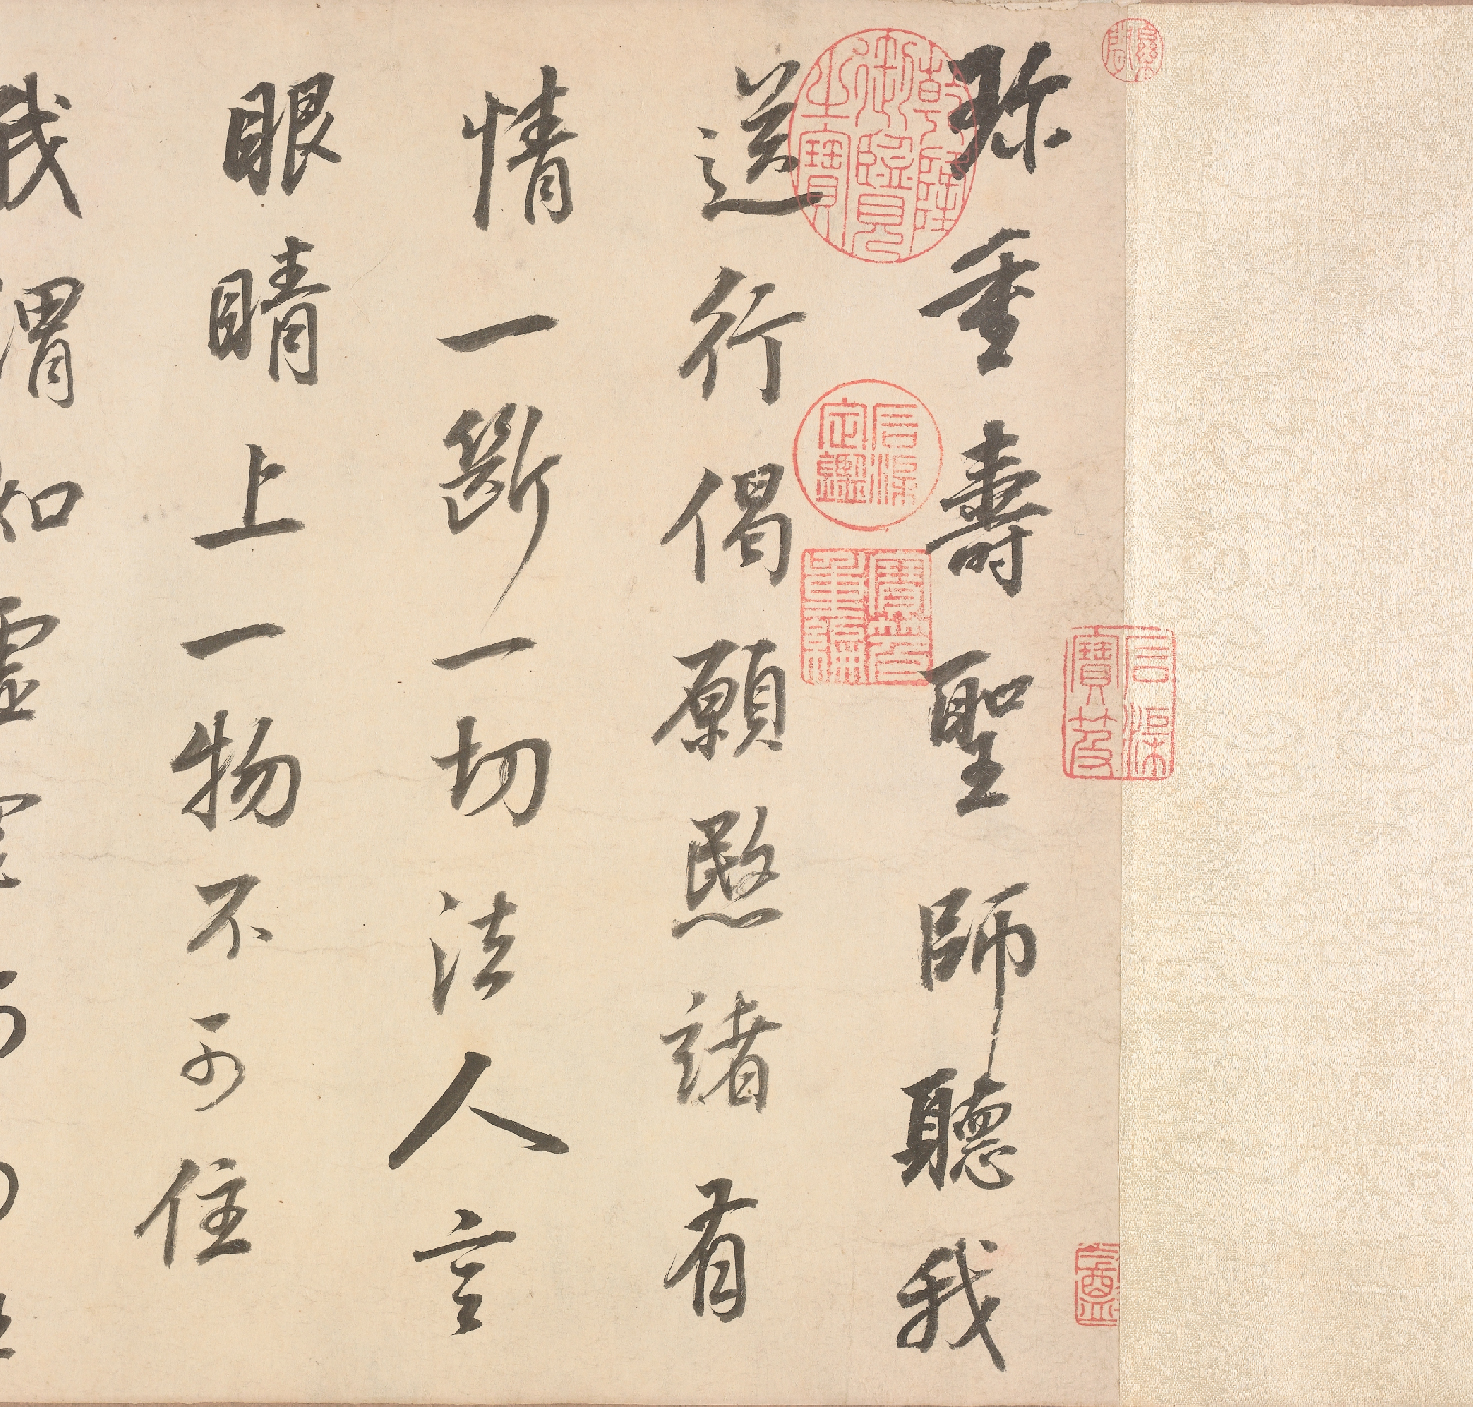 珎重壽聖師聽我
送行偈願愍諸有
情一断一切法人言
眼睛上一物不可住
我謂如虛空
乾隆御覽之寶
石渠定鑑
寶笈重編
石渠寶笈